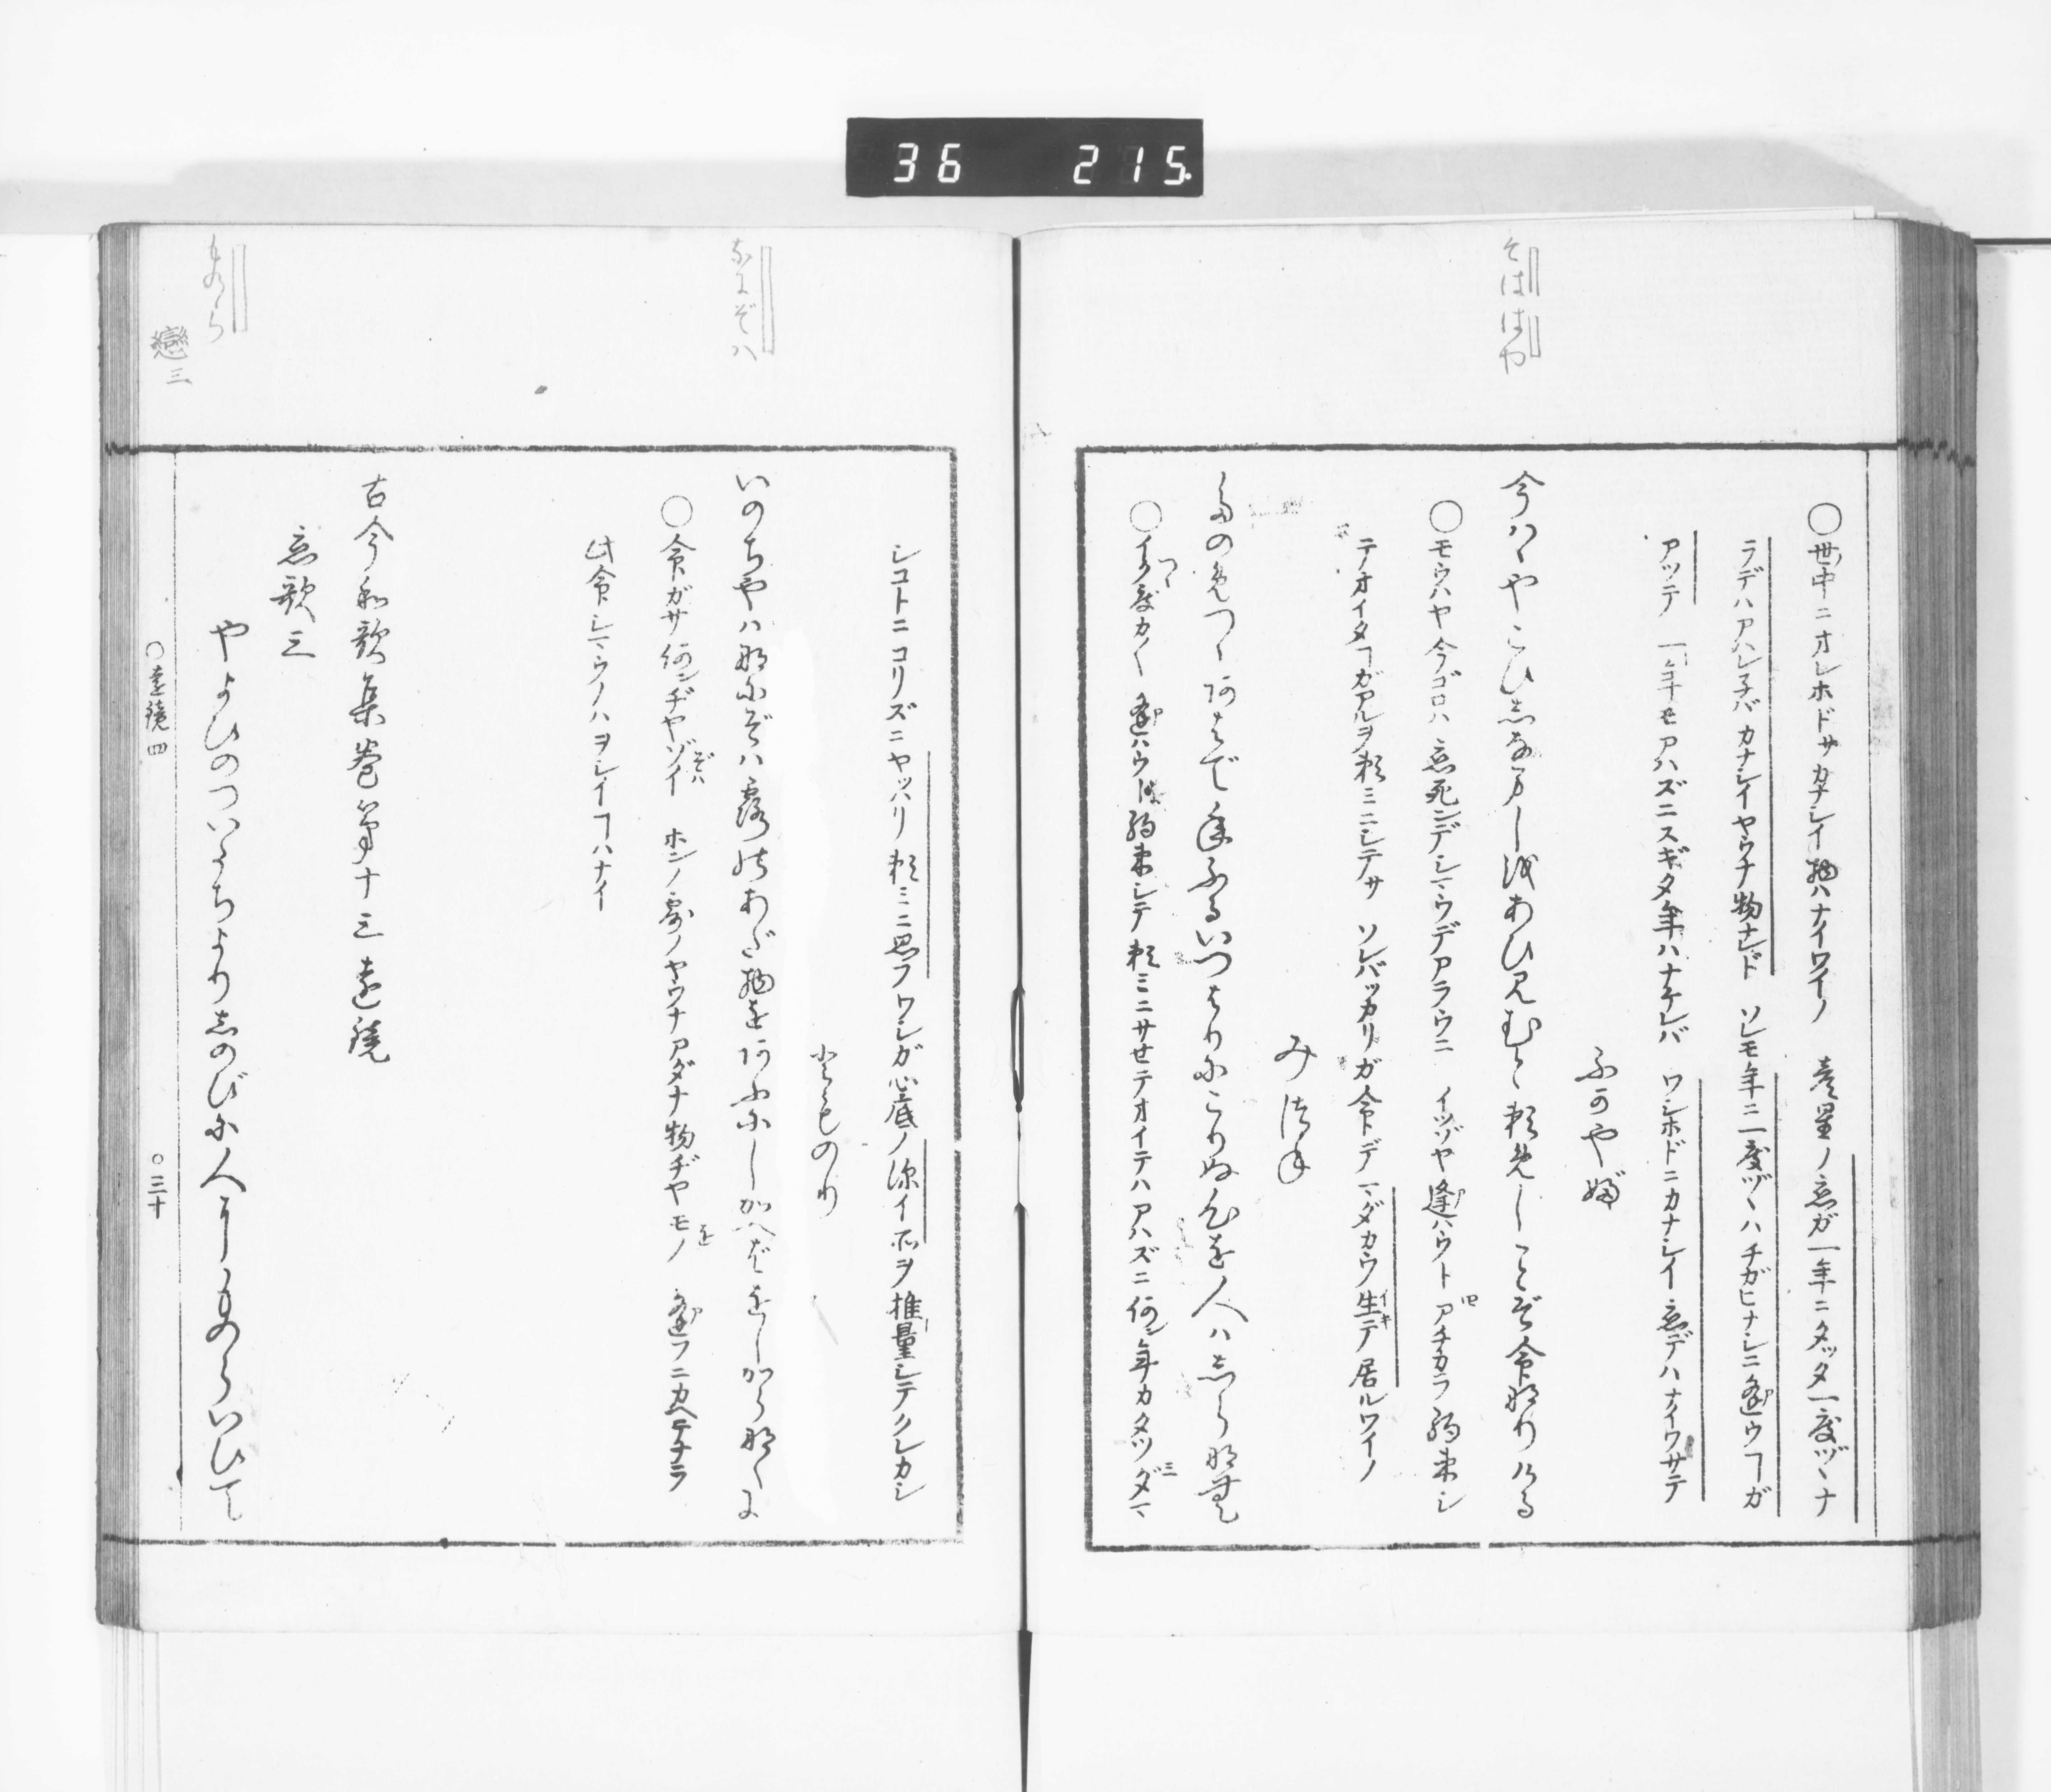 36 215.
そは はや
○世ノ中ニオレホドサカナシイ物ハナイワイノ 彦星ノ恋ガ一年ニタッタ一度ヅヽナ
ラデハアハレ子バカナシイヤウナ物ナレド ソレモ年ニ一度ヅヽハチガヒナシニ逢ウヿガ
アッテ 一年モアハズニスギタ年ハナケレバ ワシホドニカナシイ恋デハナイワサテ
ふかやぶ
今ハヽやこひしなましをあひ見むと頼めしことぞ命なりける
○モウハヤ今ゴロハ恋死ンデシマウデアラウニ イツゾヤ逢ハウトアチカラ約束シ
テオイタヿガアルヲ頼ミニシテサ ソレバッカリガ命トデマダカウ生イキテ居ルワイノ
みつね
たのめつヽあはで年ふるいつはりにこりぬ心を人ハしらなむ
○イク度カ〱逢ハウト約束シテ頼ミニサセテオイテハアハズニ何ン年カタツダマ
なにぞハ
シコトニコリズニヤッパリ頼ミニ思フワシガ心底ノ深イ所ヲ推量シテクレカシ
とものり
いのちやハなにぞハ露のあだ物をあふにしかへばをしからなくに
○命ガサ何ンヂヤゾイ ホンノ露ノヤウナアダナ物ヂヤモノ 逢フニカヘテナラ
此命シマウノハヲシイヿハナイ
古今和歌集巻第十三遠鏡
恋歌三
ものら
戀三
やよひのついたちよりしのびに人にものらいひて
○遠鏡四 ○三十